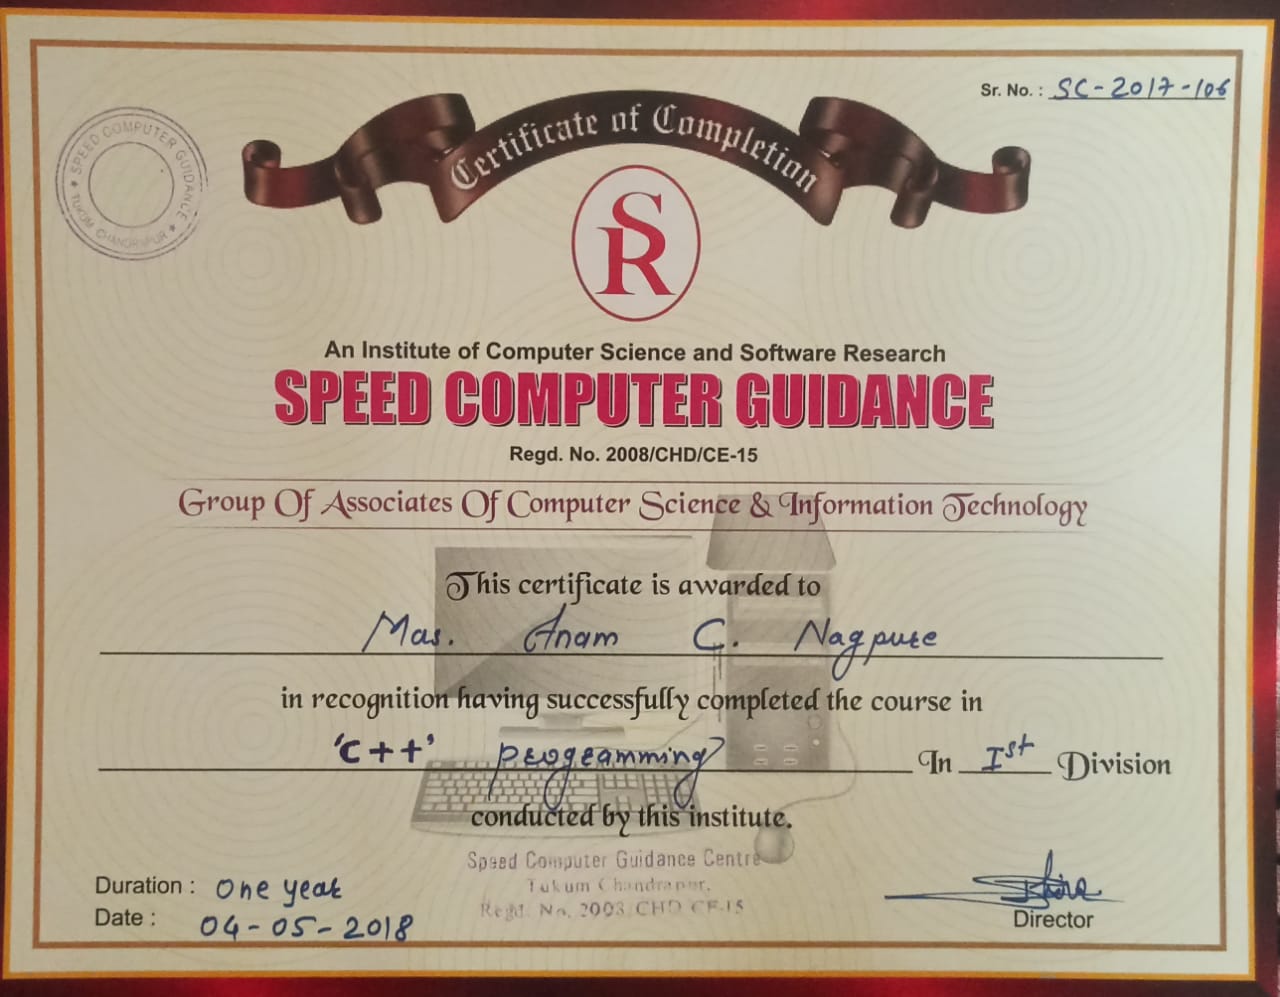 Sr. No. : SC-2017-106
Certificate of Completion
SPEED COMPUTER GUIDANCE
TUKUM CHANDRAPUR
SR
An Institute of Computer Science and Software Research
SPEED COMPUTER GUIDANCE
Regd. No. 2008/CHD/CE-15
Group Of Associates Of Computer Science & Information Technology
This certificate is awarded to
Mas. Anam C. Nagpure
in recognition having successfully completed the course in
'C++' programming In Ist Division
conducted by this institute.
Speed Computer Guidance Centre
Tukum Chandrapur.
Regd. No. 2008 CHD CE-15
Duration : One year
Date : 04-05-2018
Director